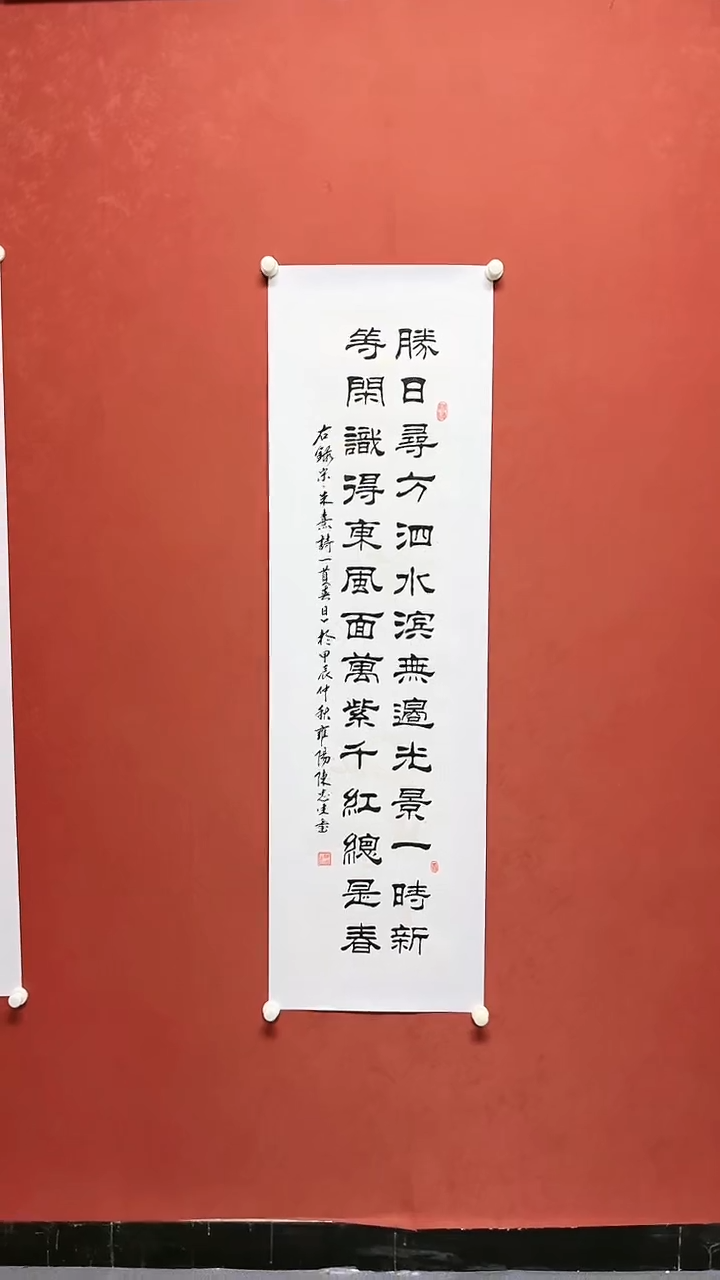 勝日尋方泗水滨無邊光景一時新
等閑識得東風面萬紫千紅總是春
右錄宋·朱熹詩一首春日於甲辰仲秋雍陽陳志生書